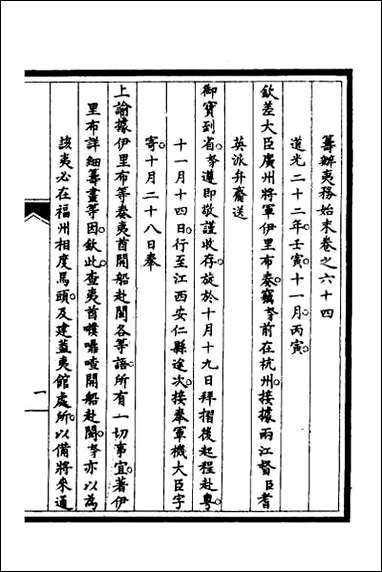 籌辦夷務始末卷之六十四
道光二十二年壬寅十一月丙寅
欽差大臣廣州將軍伊里布奏竊奴才前在杭州接據兩江督臣耆
英派弁齎送
御寶到省奴才遵即敬謹收存旋於十月十九日拜摺後起程赴粵
十一月十四日行至江西安仁縣途次接奉軍機大臣字
寄十月二十八日奉
上諭據伊里布等奏夷酋開船赴閩各等語所有一切事宜著伊
里布詳細籌畫等因欽此查夷酋噗𠸄喳開船赴閩奴才亦以為
該夷必在福州相度馬頭及建蓋夷館處所以備將來通
一